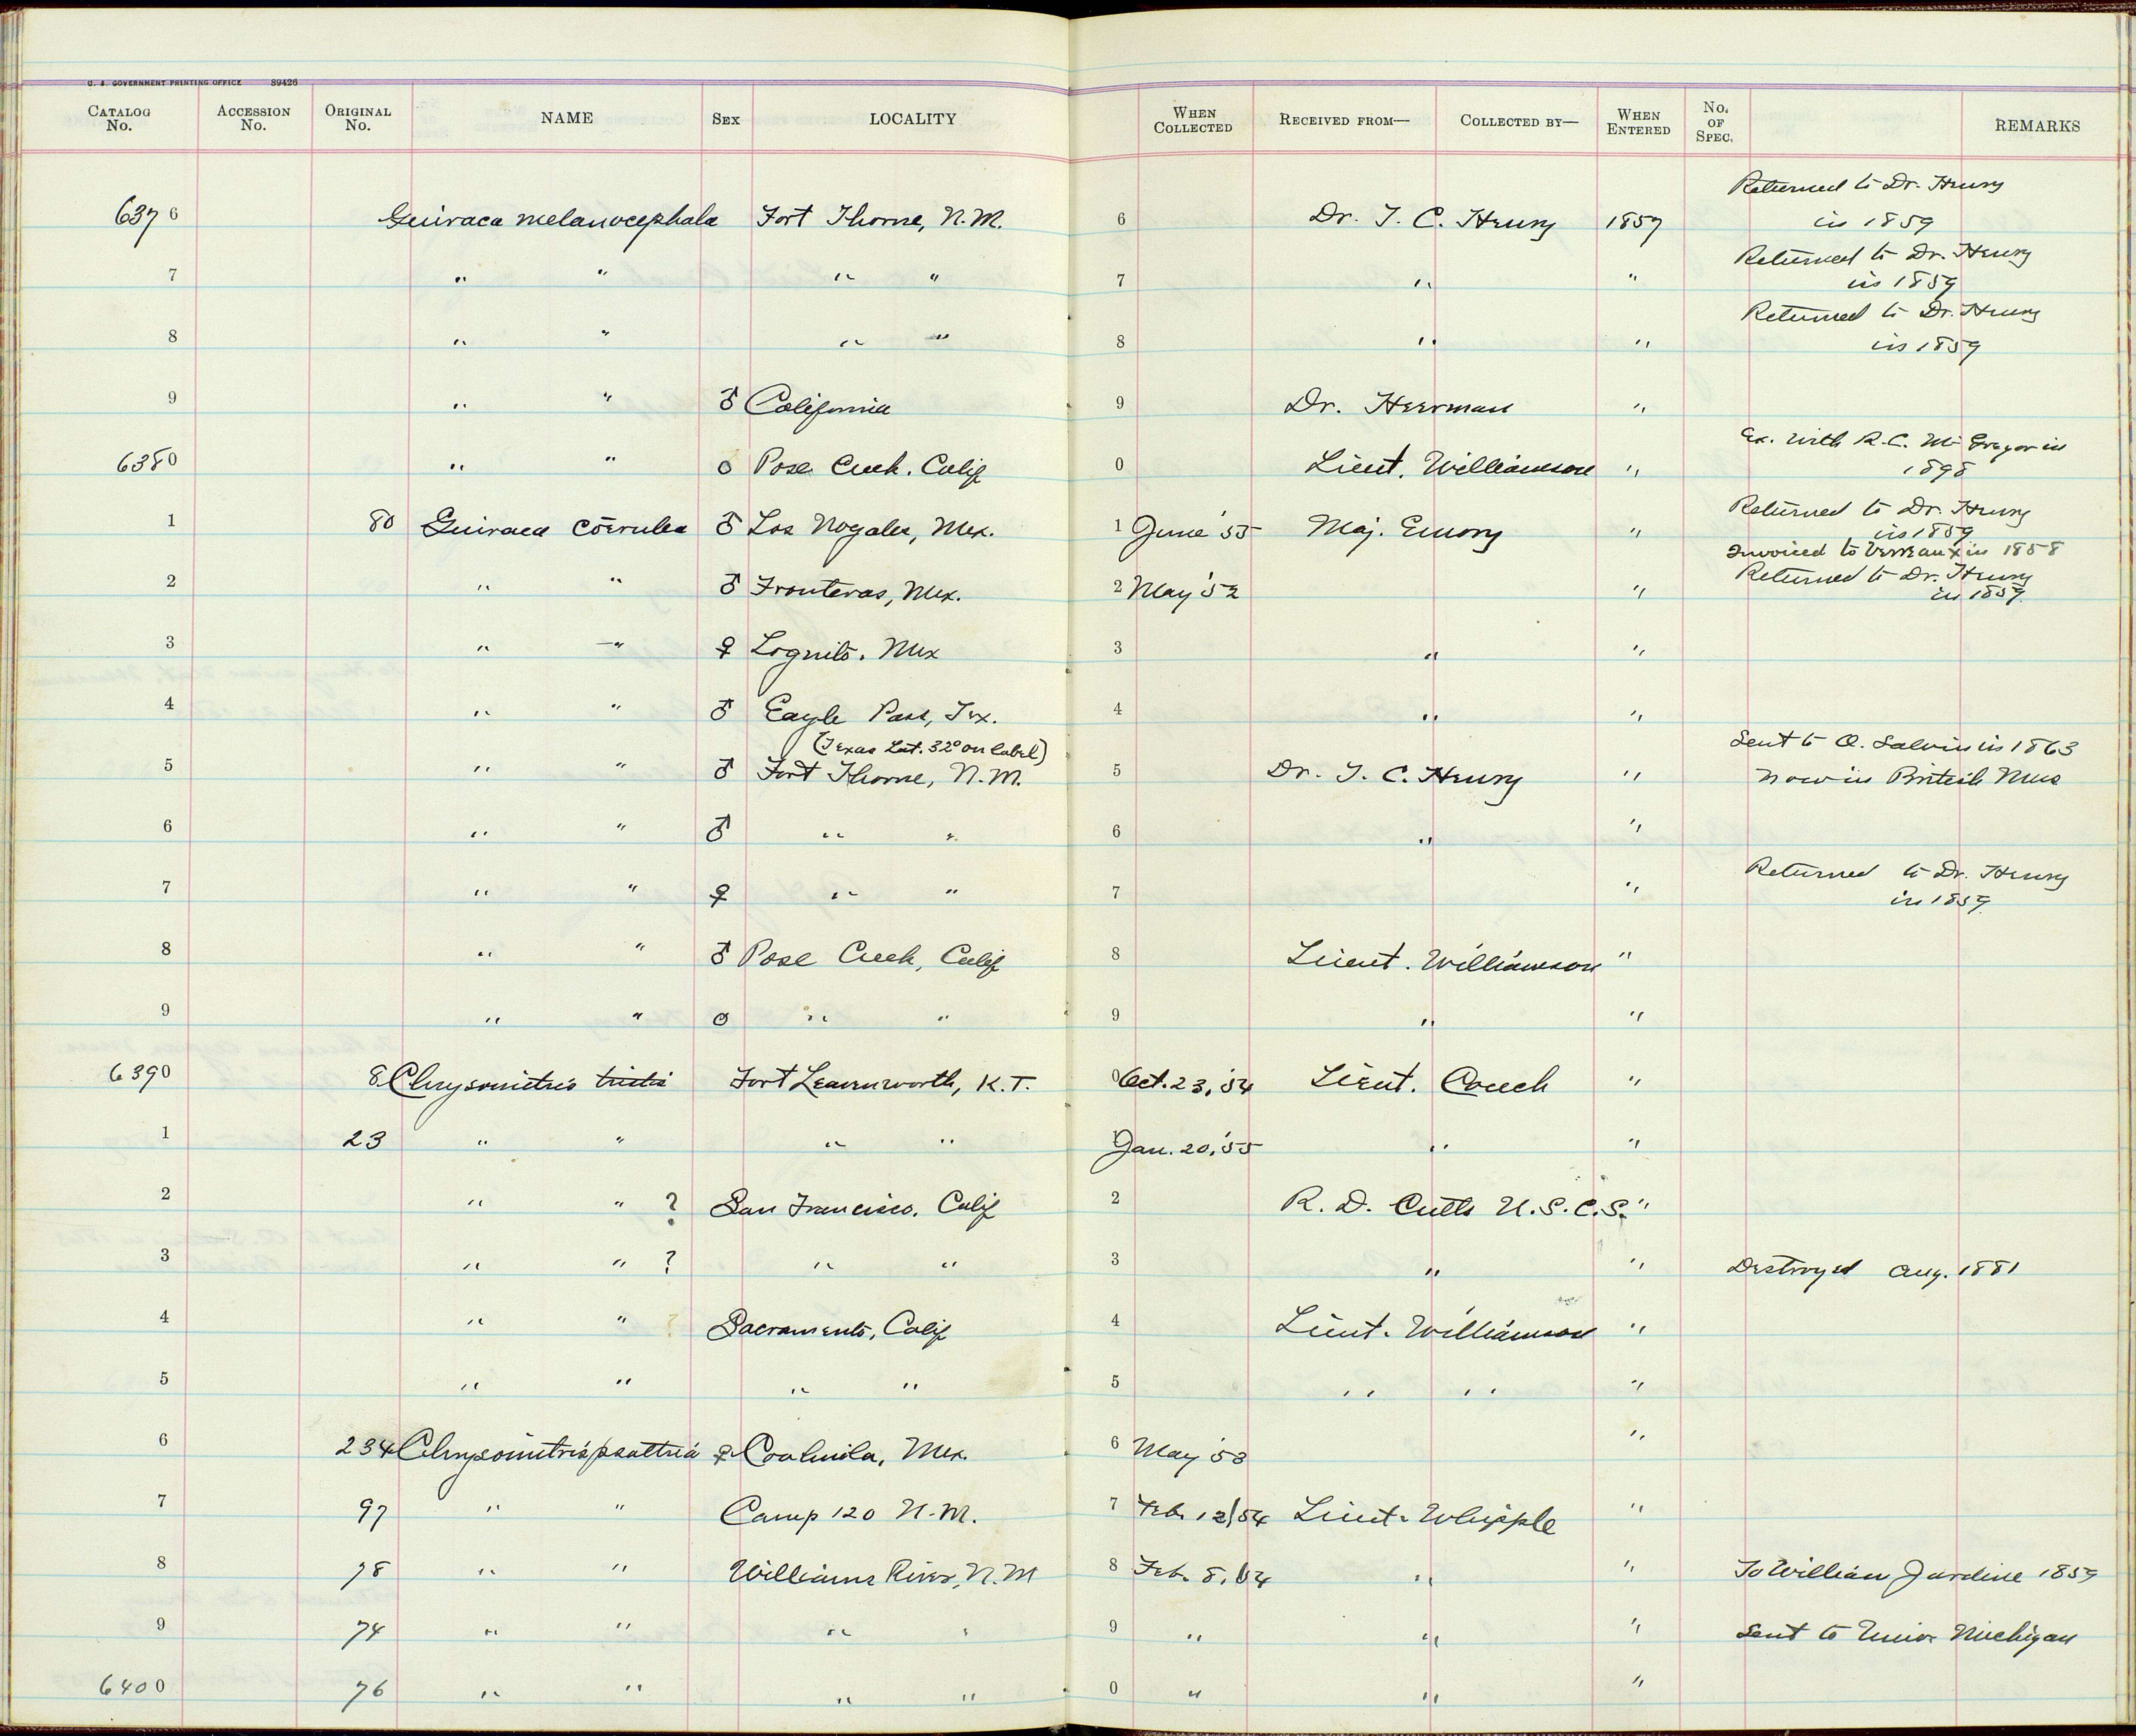 U. S. GOVERNMENT PRINTING OFFICE 89426
CATALOG No. ACCESSION No. ORIGINAL No. NAME SEX LOCALITY WHEN COLLECTED RECEIVED FROM— COLLECTED BY— WHEN ENTERED No. OF SPEC. REMARKS
Returned to Dr. Henry
6376 Guiraca melanocephala Fort Thorne, N.M. 6 Dr. T. C. Henry 1857 in 1859
Returned to Dr. Henry
7 " " " " 7 " " in 1859
Returned to Dr. Henry
8 " " " " 8 " " in 1859
9 " " ♂ California 9 Dr. Heerman "
Ex. with R.C. McGregor in
6380 " " O Pose Creek. Calif 0 Lieut. Williamson " 1898
Returned to Dr. Henry
1 80 Guiraca cœrulea ♂ Los Nogales, Mex. 1 June '55 Maj. Emory " in 1859
Invoiced to Verreaux in 1858
Returned to Dr. Henry
2 " " ♂ Fronteras, Mex. 2 May '52 " in 1859
3 " " ♀ Mex 3 " "
4 " " ♂ Eagle Pass, Tex. 4 " "
(Texas Lat. 32° on label) Sent to O. Salvin in 1863
5 " " ♂ Fort Thorne, N.M. 5 Dr. T. C. Henry " now in British Mus
6 " " ♂ " " 6 " "
Returned to Dr. Henry
7 " " ♀ " " 7 " in 1859
8 " " ♂ Pose Creek, Calif 8 Lieut. Williamson "
9 " " O " " 9 " "
6390 8 Chrysomitris tristis Fort Leavenworth, K.T. 0 Oct. 23, '54 Lieut. Couch "
1 23 " " " " 1 Jan. 20, '55 " "
2 " " ? San Francisco. Calif 2 R. D. Cutts U.S.C.S. "
3 " " ? " " 3 " " Destroyed Aug. 1881
4 " " ? Sacramento, Calif 4 Lieut. Williamson "
5 " " " " 5 " " "
6 234 Chrysomitris psaltria ♀ Coahuila, Mex. 6 May '53 "
7 97 " " Camp 120 N.M. 7 Feb. 12/54 Lieut. Whipple "
8 78 " " Williams River, N.M 8 Feb. 8, 54 " " To William Jardine 1859
9 74 " " " " 9 " " " Sent to Univ. Michigan
6400 76 " " " " 0 " " "